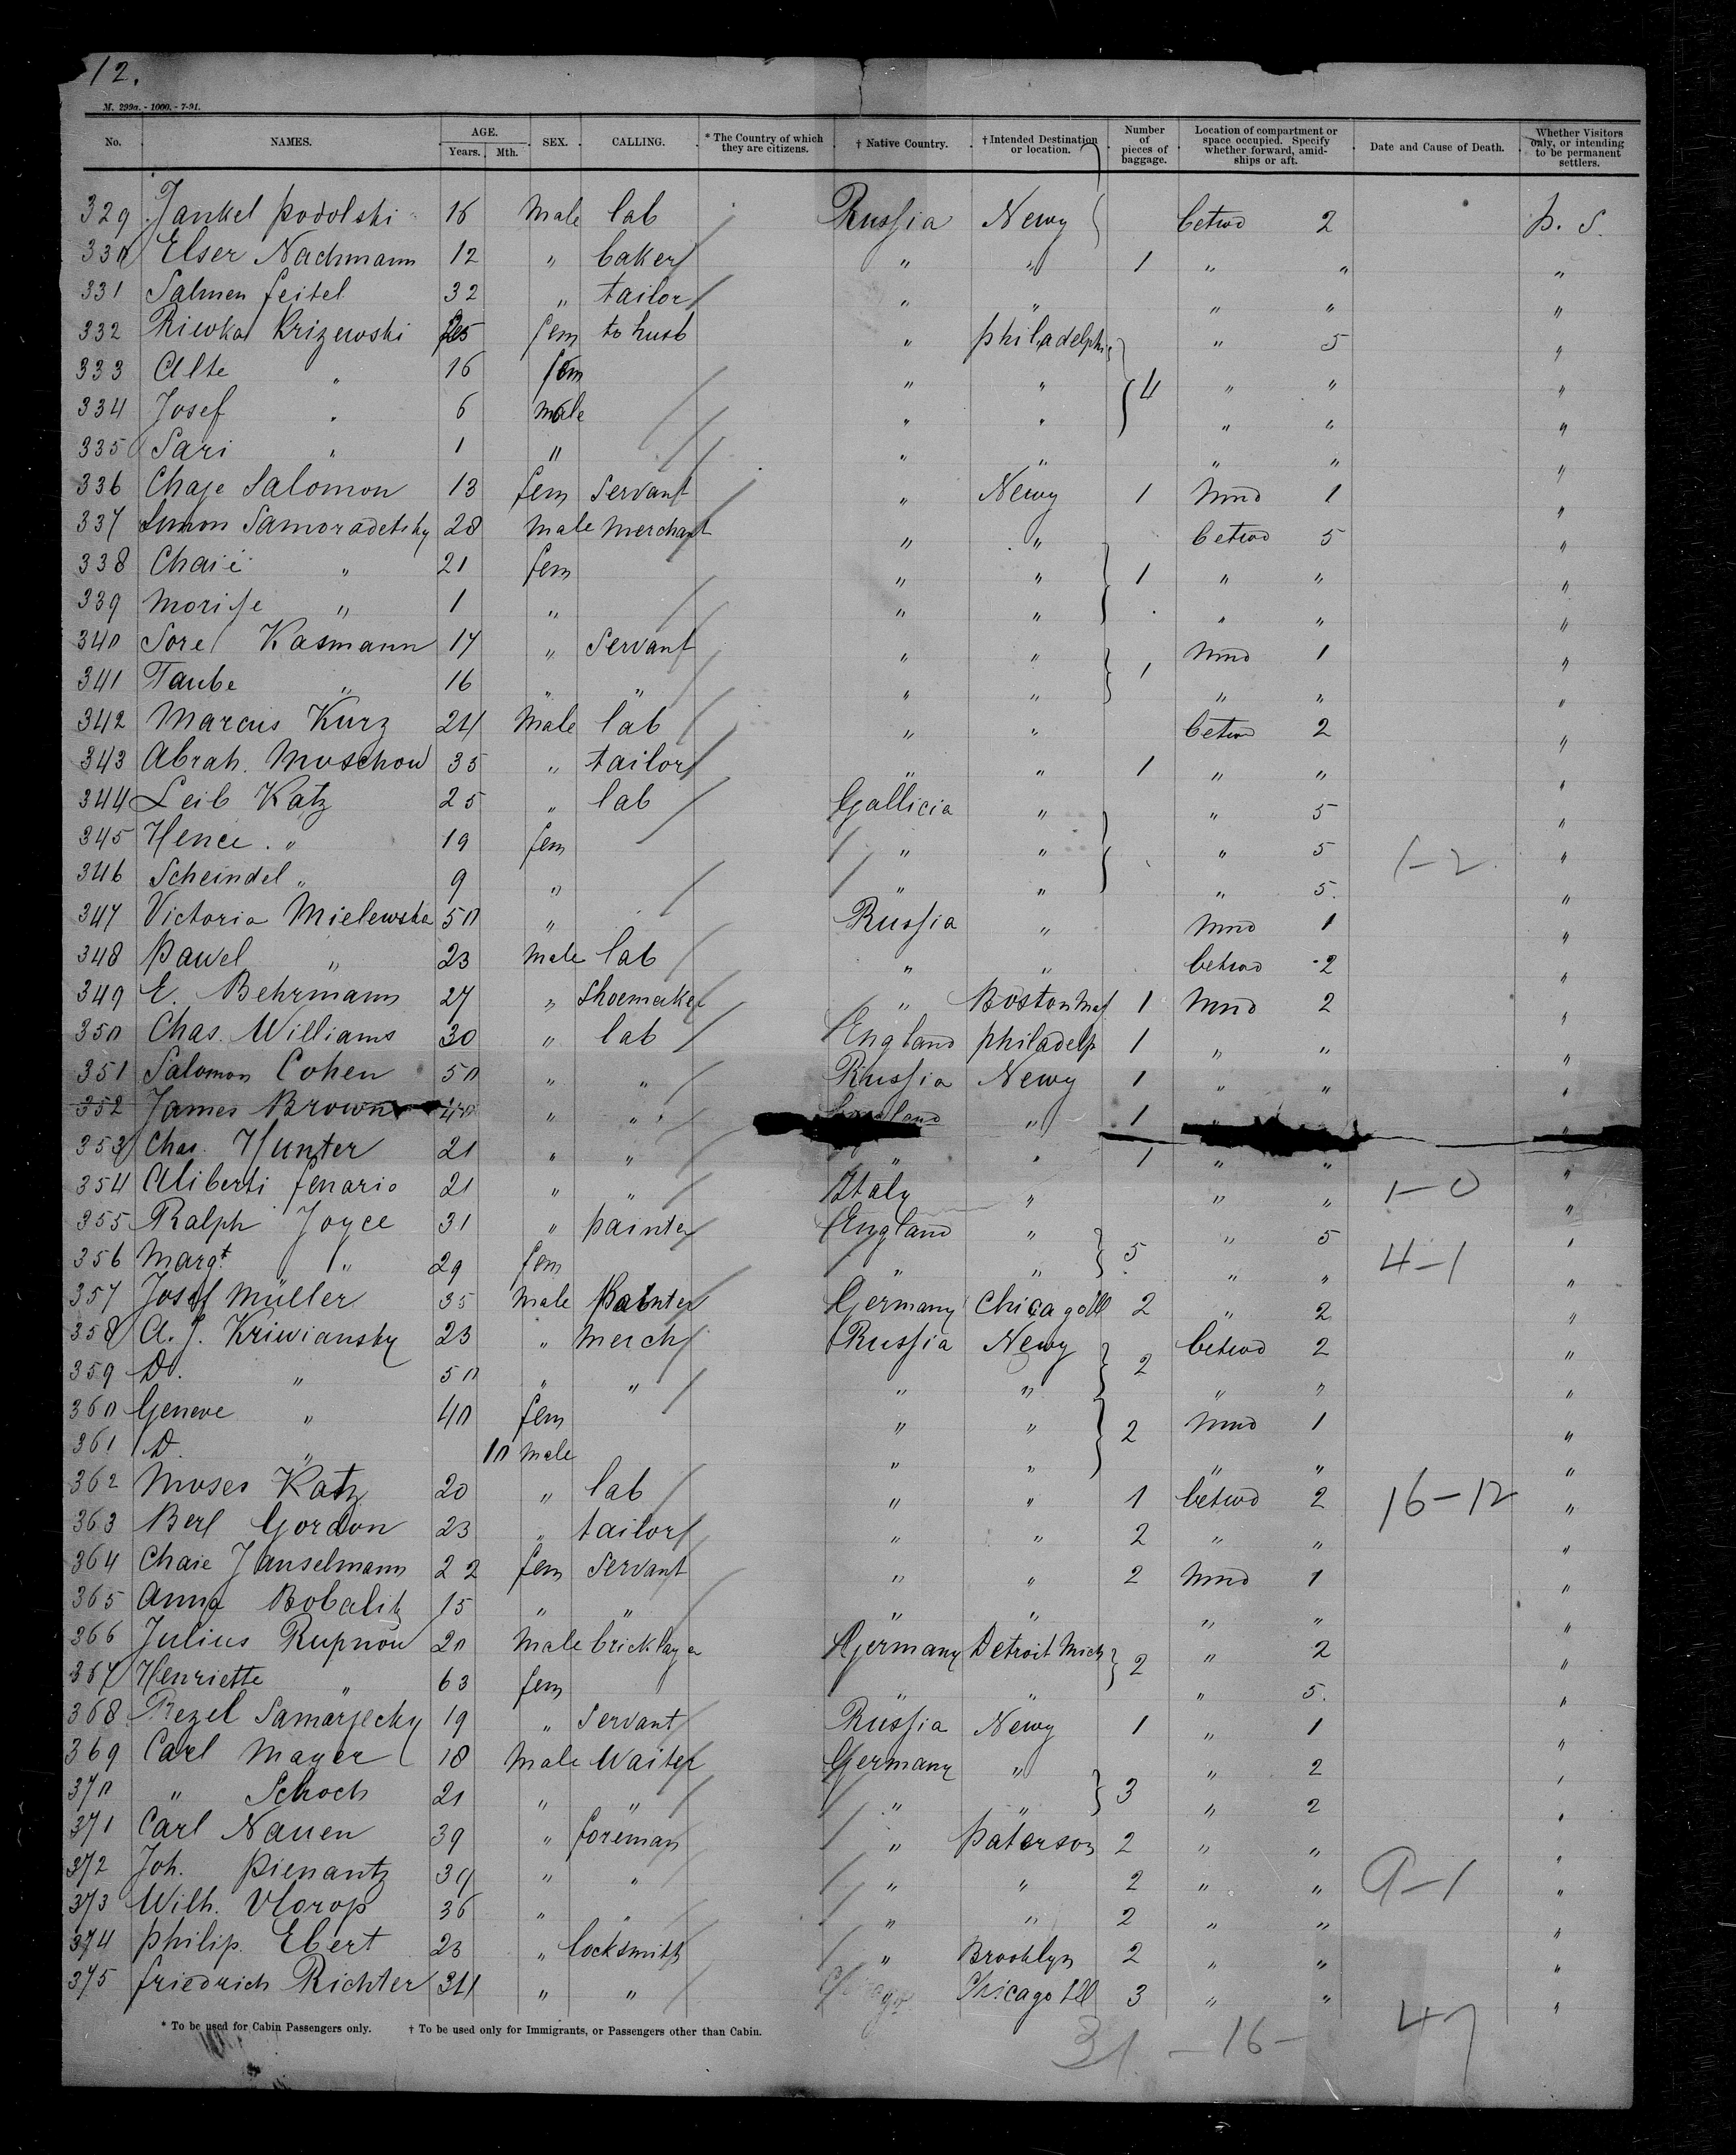 12.
M. 299a. - 1000. - 7-91.
No. NAMES. AGE. Years. Mth. SEX. CALLING. * The Country of which they are citizens. † Native Country. † Intended Destination or location. Number of pieces of baggage. Location of compartment or space occupied. Specify whether forward, amidships or aft. Date and Cause of Death. Whether Visitors only, or intending to be permanent settlers.
329 Jankel Podolski 16 Male lab Russia Newy betwd 2 p. s.
330 Elser Nachmann 12 " baker " " 1 " " "
331 Salmen feitel 32 " tailor " " " " "
332 Riwka Krizewski 25 fem to husb " philadelphi " 5 "
333 Alte " 16 fem " " 4 " " "
334 Josef " 6 male " " " " "
335 Sari " 1 " " " " " "
336 Chaje Salomon 13 fem Servant " Newy 1 1 "
337 Samoradetsky 28 Male Merchant " " betwd 5 "
338 Chaie " 21 fem " " 1 " " "
339 Morisse " 1 " " " " " "
340 Sore Kasmann 17 " Servant " " 1 1 "
341 Taube " 16 " " " " " " "
342 Marcus Kurz 24 Male lab " " betwd 2 "
343 Abrah. Muschow 35 " tailor " " 1 " " "
344 Leib Katz 25 " lab Gallicia " " 5 "
345 Hence " 19 fem " " " 5 1-2 "
346 Scheindel " 9 " " " " 5 "
347 Victoria Mielewska 50 " Russia " 1 "
348 Pawel " 23 Male lab " " betwd 2 "
349 E. Behrmann 27 " Shoemaker " Boston Mas 1 2 "
350 Chas. Williams 30 " lab England philadelp 1 " " "
351 Salomon Cohen 50 " " Russia Newy 1 " " "
352 James Brown 40 " " England " 1 "
353 Chas. Hunter 21 " " " " 1 " " "
354 Aliberti fenario 21 " " Italy " " " 1-0 "
355 Ralph Joyce 31 " painter England " 5 " 5 "
356 Margt " 29 fem " " " " 4-1 "
357 Josef Müller 35 Male Painter Germany Chicago Ill 2 " 2 "
358 A. J. Kriwiansky 23 " Merch Russia Newy 2 betwd 2 "
359 D. " 50 " " " " " " "
360 Geneve " 40 fem " " 2 1 "
361 D. " 10 male " " " " "
362 Moses Katz 20 " lab " " 1 betwd 2 16-12 "
363 Berl Gordon 23 " tailor " " 2 " " "
364 Chaie Janselmann 22 fem Servant " " 2 1 "
365 Anna Bobalik 15 " " " " " " "
366 Julius Rupnow 20 Male bricklayer Germany Detroit Mich 2 " 2 "
367 Henriette " 63 fem " " " 5. "
368 Rezel Samarjecky 19 " Servant Russia Newy 1 " 1 "
369 Carl Mayer 18 Male Waiter Germany " 3 " 2 "
370 " Schoch 21 " " " " " 2 "
371 Carl Nauen 39 " foreman " Paterson 2 " " "
372 Joh. Pienantz 39 " " " " 2 " " 9-1 "
373 Wilh. 36 " " " " 2 " " "
374 Philip Ebert 23 " locksmith " Brooklyn 2 " " "
375 friedrich Richter 34 " " Chicago Chicago Ill 3 " " "
* To be used for Cabin Passengers only. † To be used only for Immigrants, or Passengers other than Cabin.
31 - 16 - 47